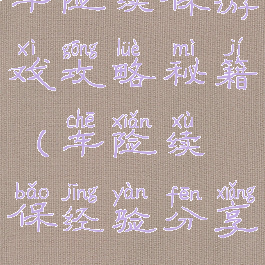 车险续保游
xì gōng lüè mì jí
戏攻略秘籍
chē xiǎn xù
(车险续
bǎo jīng yàn fēn xiǎng
保经验分享